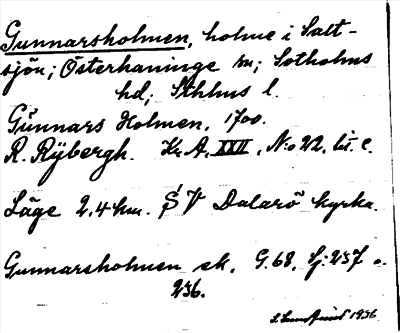 Gunnarsholmen, holme i Salt-
sjön; Österhaninge sn; Sotholms
hd; Sthlms l.
Gunnars Holmen, 1700.
R. Rÿbergh. K. A. XXII, N:o 22. lit. c.
Läge 2,4 km. SV Dalarö kyrka.
Gunnarsholmen ek. G. 68, Sj: 257 o.
256.
1936